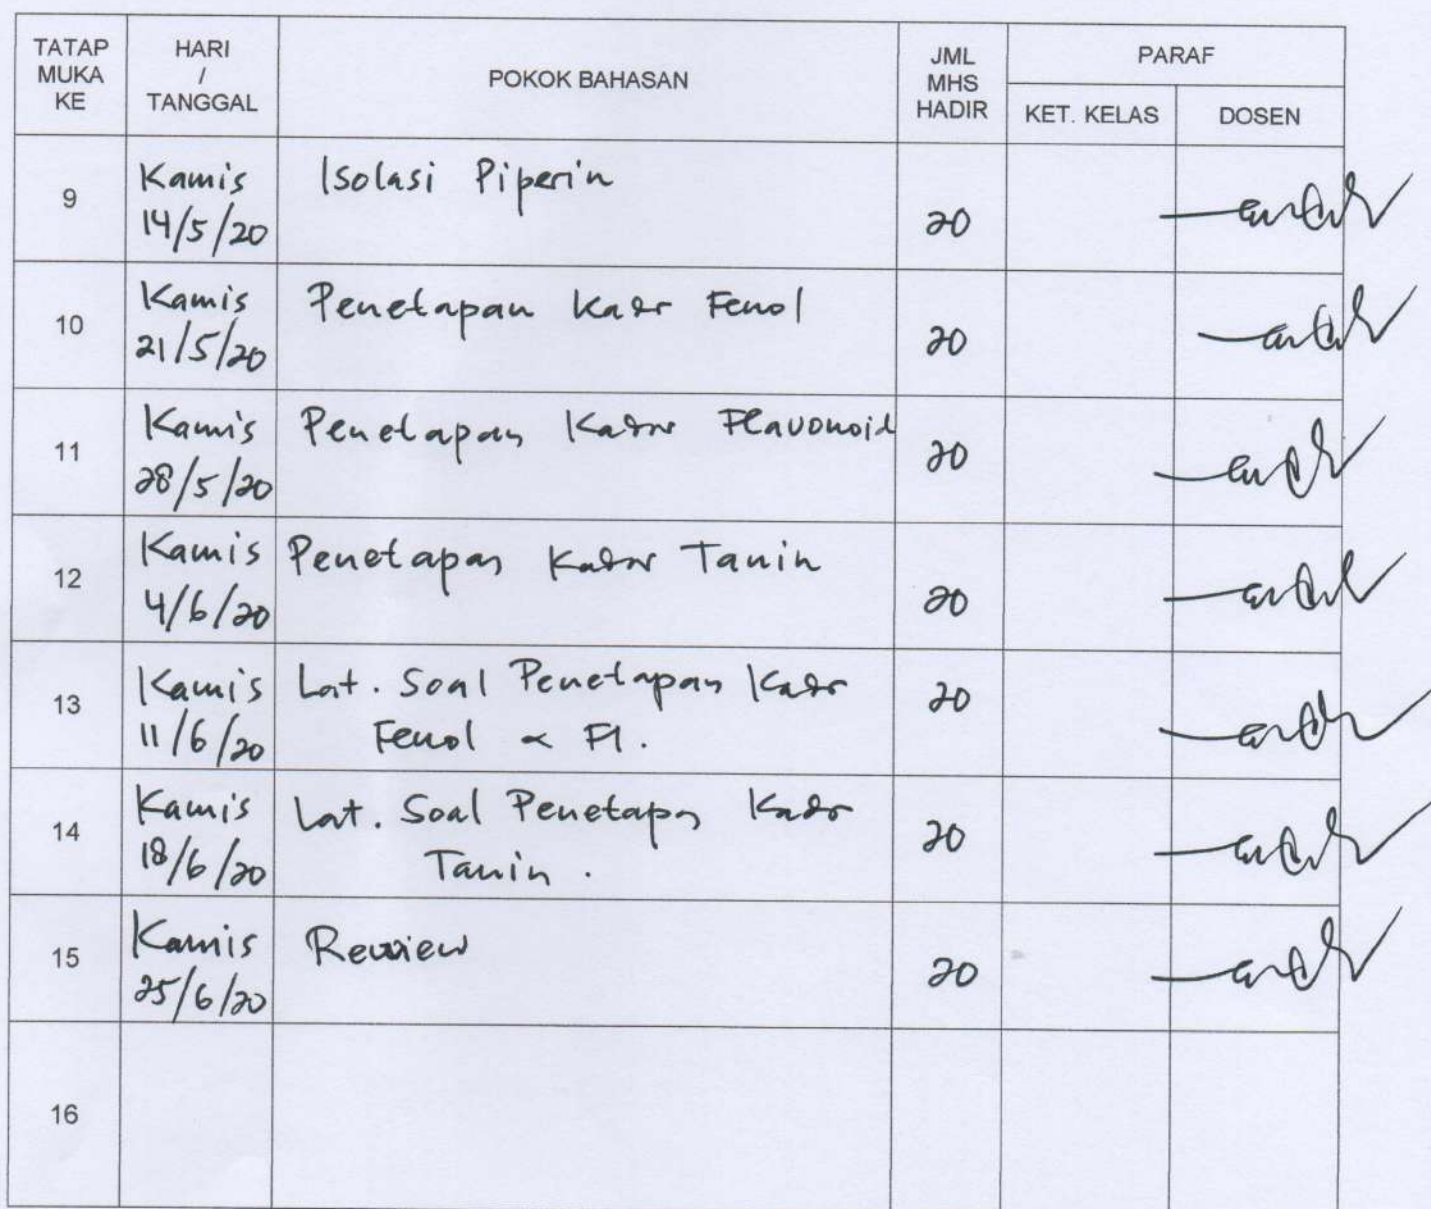 TATAP MUKA KE
HARI / TANGGAL
POKOK BAHASAN
JML MHS HADIR
PARAF
KET. KELAS
DOSEN
9
Kamis
14/5/20
Isolasi Piperin
20
10
Kamis
21/5/20
Penetapan Kadar Fenol
20
11
Kamis
28/5/20
Penetapan Kadar Flavonoid
20
12
Kamis
4/6/20
Penetapan Kadar Tanin
20
13
Kamis
11/6/20
Lat. Soal Penetapan Kadar
Fenol & Fl.
20
14
Kamis
18/6/20
Lat. Soal Penetapan Kadar
Tanin.
20
15
Kamis
25/6/20
Review
20
16